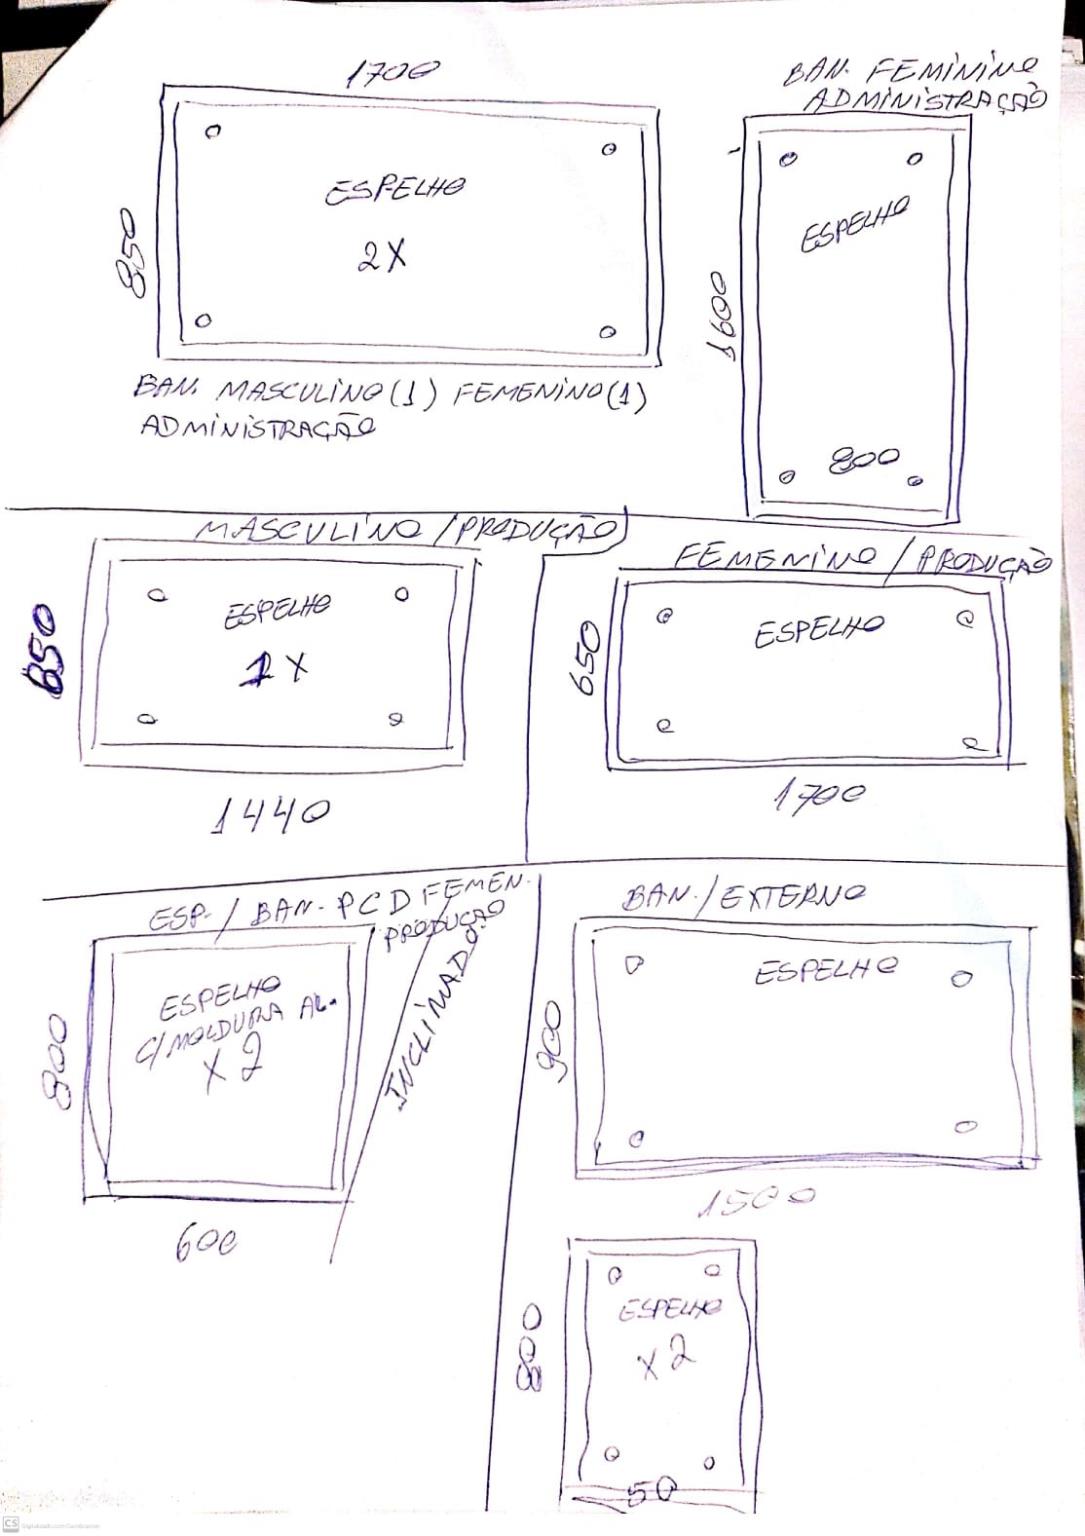 1700
850
ESPELHO
2X
BAN. MASCULINO(1) FEMENINO(1)
ADMINISTRAÇÃO
BAN. FEMININO
ADMINISTRAÇÃO
1600
ESPELHO
800
MASCULINO/PRODUÇÃO
650
ESPELHO
1X
1440
FEMENINO/PRODUÇÃO
650
ESPELHO
1700
ESP./BAN. PCD FEMEN.
PRODUÇÃO
800
ESPELHO
C/MOLDURA AL.
X2
INCLINADO
600
BAN./EXTERNO
900
ESPELHO
1500
800
ESPELHO
X2
50
CS Digitalizado com CamScanner